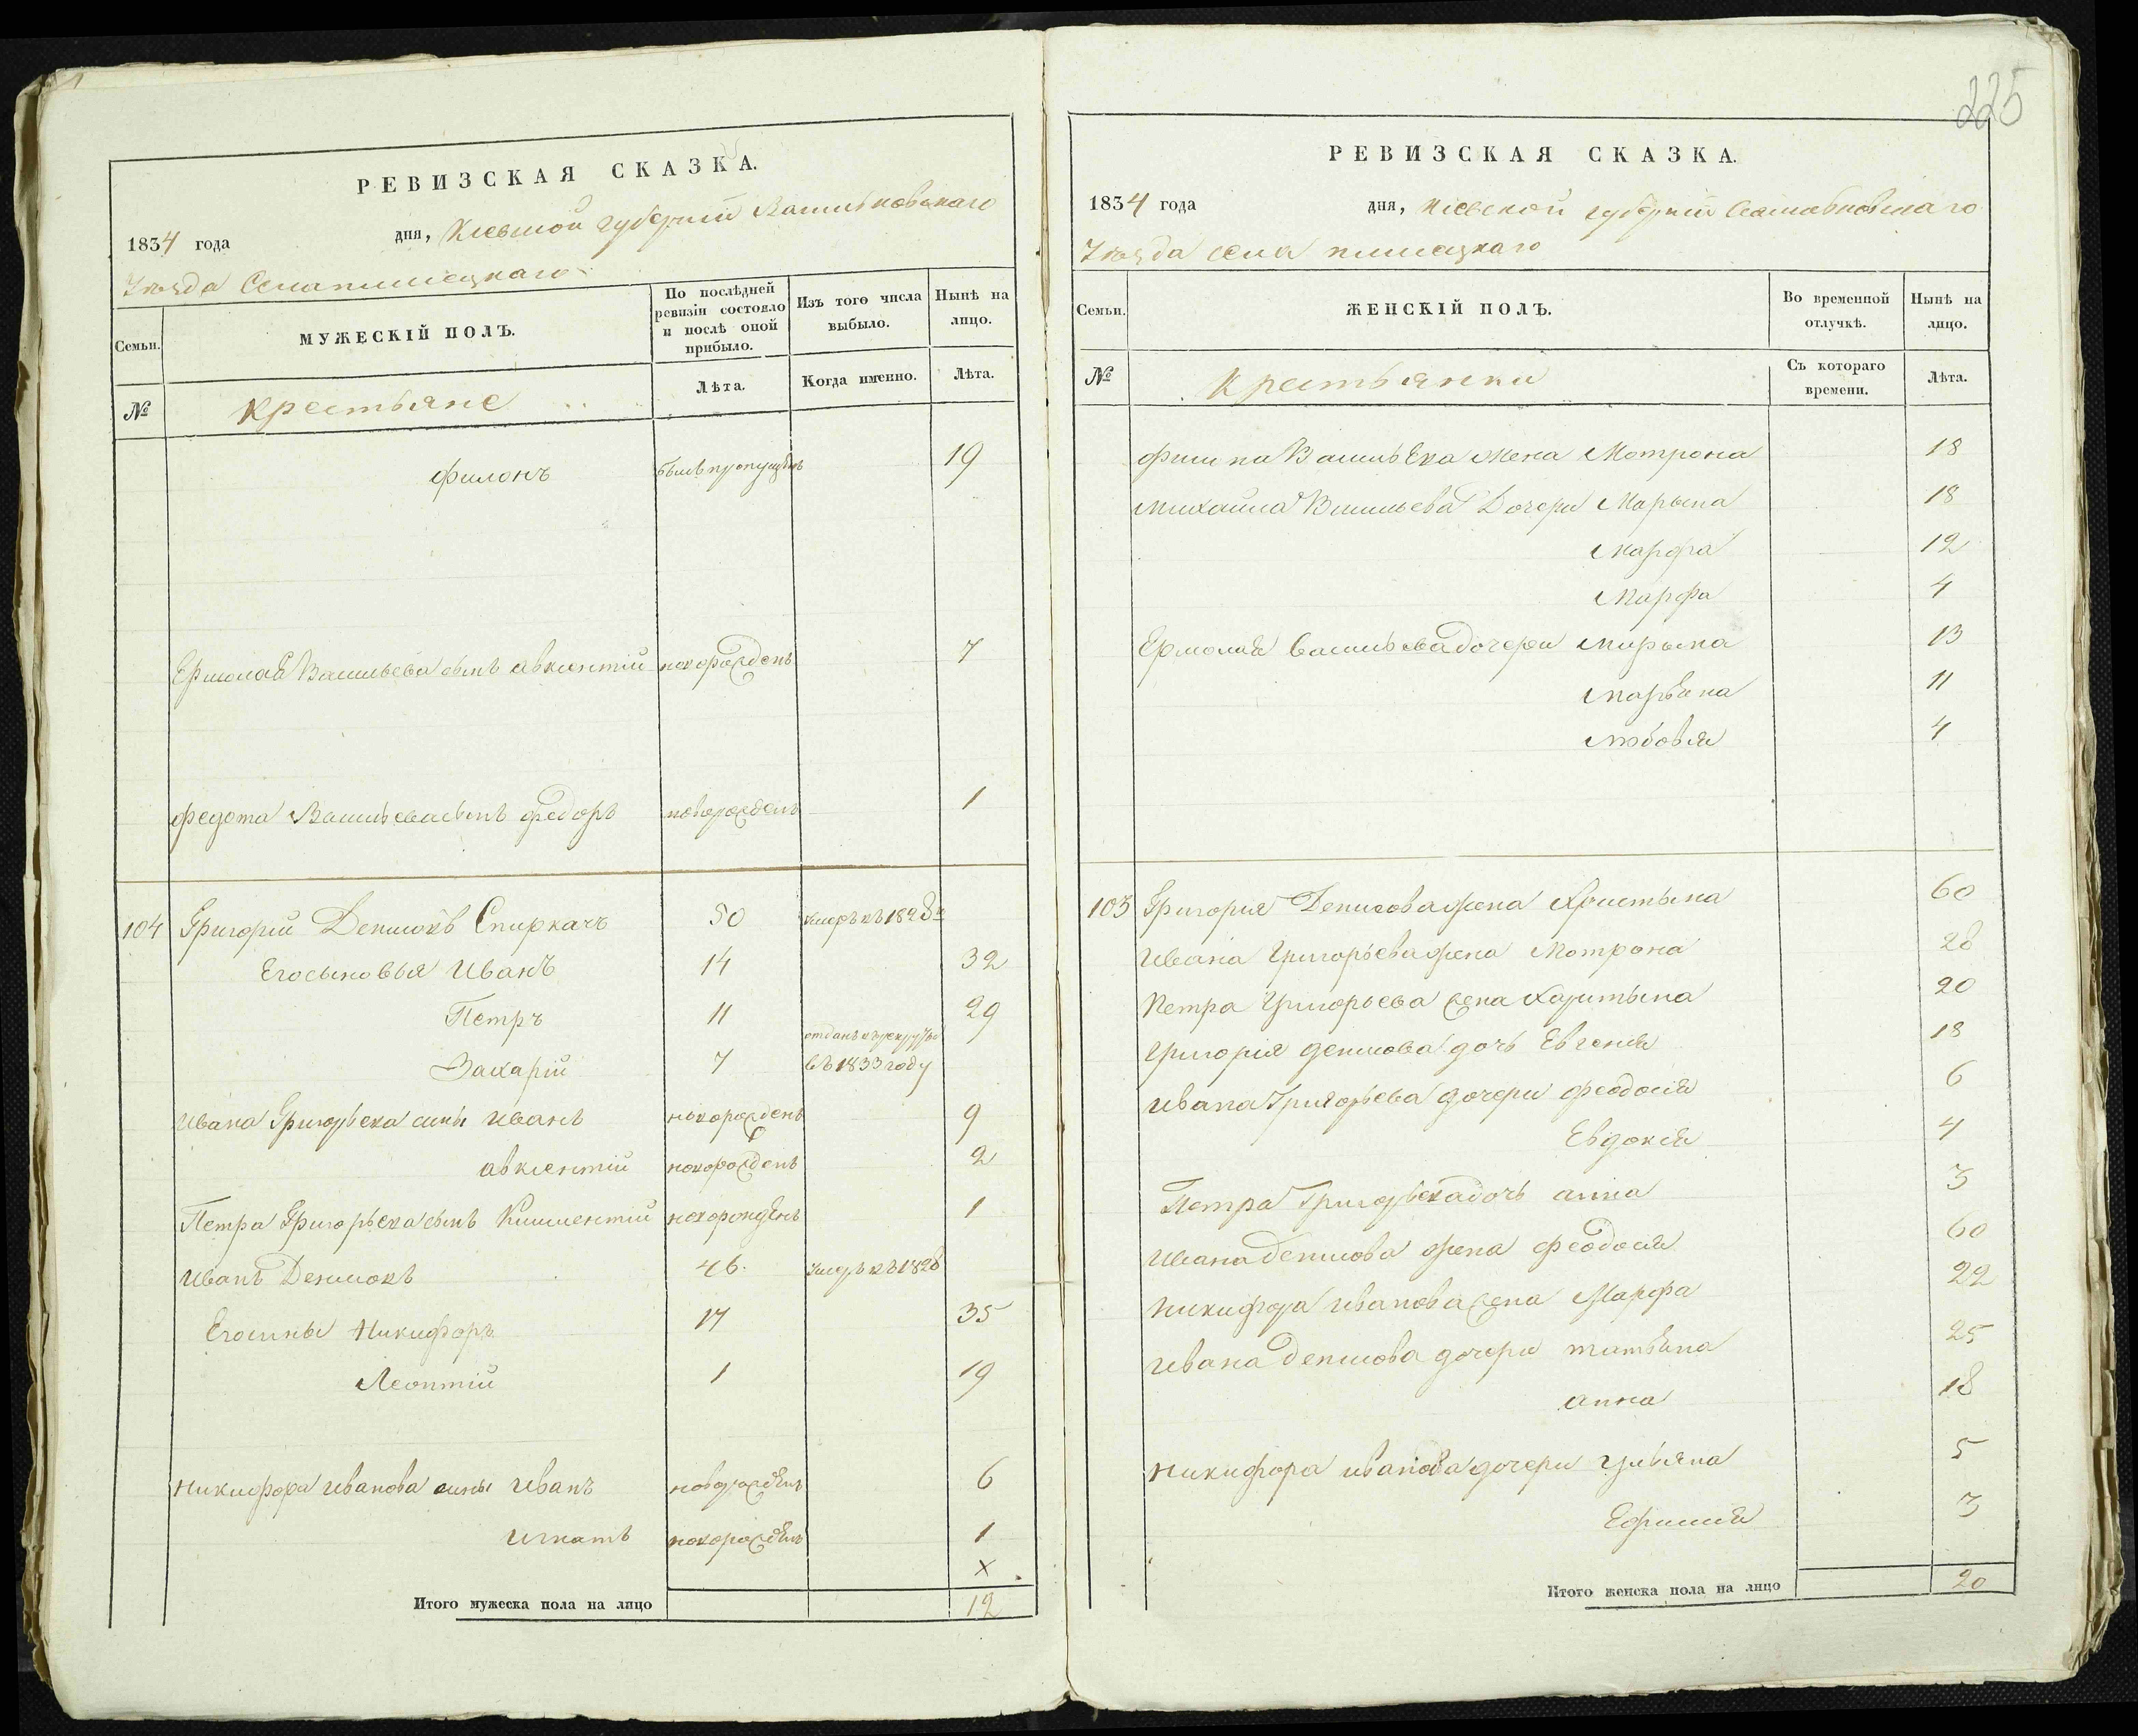 225
РЕВИЗСКАЯ СКАЗКА.
1834 года дня, Киевской губерніи Васильковскаго
Уезда Села
Семьи.
МУЖЕСКІЙ ПОЛЪ.
По послѣдней ревизіи состояло и послѣ оной прибыло.
Изъ того числа выбыло.
Нынѣ на лицо.
№
крестьяне
Лѣта.
Когда именно.
Лѣта.
Филонъ былъ пропущенъ 19
Ермолая Васильева сынъ авксентій новорожденъ 7
федота Васильева сынъ федоръ новорожденъ 1
104 Григорій Денисовъ Спиркачъ 50 умеръ въ 1828
Его сыновья Иванъ 14 32
Петръ 11 29
Захарій 7 отданъ въ рекруты
въ 1833 году
Ивана Григорьева сыны Иванъ новорожденъ 9
авксентій новорожденъ 2
Петра Григорьева сынъ Климентій новорожденъ 1
Иванъ Денисовъ 46. умеръ въ 1828
Его сыны Никифоръ 17 35
Леонтій 1 19
Никифора Иванова сыны Иванъ новорожденъ 6
Игнатъ новорожденъ 1
х
Итого мужеска пола на лицо 12
РЕВИЗСКАЯ СКАЗКА.
1834 года дня, Киевской губерніи Васильковскаго
Уезда села
Семьи.
ЖЕНСКІЙ ПОЛЪ.
Во временной отлучкѣ.
Нынѣ на лицо.
№
Крестьянки
Съ котораго времени.
Лѣта.
Васильева жена Мотрона 18
Михайла Васильева Дочери Марына 18
Марфа 12
Марфа 4
Ермолая Васильева дочери 13
Марьяна 11
Любовія 4
103 Григория Денисова жена Христына 60
Ивана Григорьева жена Мотрона 28
Петра Григорьева жена Харитына 20
Григорія денисова дочь Евгенія 18
Ивана Григорьева дочери феодосія 6
Евдокія 4
Петра Григорьева дочь анна 3
Ивана денисова жена феодосія 60
Никифора иванова жена Марфа 22
Ивана денисова дочери татьяна 25
анна 18
Никифора иванова дочери ульяна 5
Ефимия 3
Итого женска пола на лицо 20